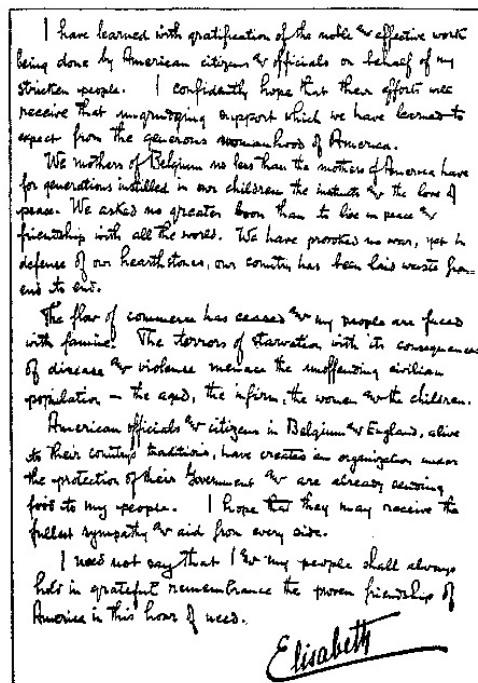 I have learned with gratification of the noble & effective work
being done by American citizens & officials on behalf of my
stricken people. I confidently hope that their efforts will
receive that ungrudging support which we have learned to
expect from the generous womanhood of America.
We mothers of Belgium no less than the mothers of America have
for generations instilled in our children the instincts & the love of
peace. We asked no greater boon than to live in peace &
friendship with all the world. We have provoked no war, yet in
defense of our hearthstones, our country has been laid waste from
end to end.
The flow of commerce has ceased & my people are faced
with famine. The terrors of starvation with its consequences
of disease & violence menace the unoffending civilian
population – the aged, the infirm, the women & the children.
American officials & citizens in Belgium & England, alive
to their country's traditions, have created an organization under
the protection of their Government & are already sending
food to my people. I hope that they may receive the
fullest sympathy & aid from every side.
I need not say that I & my people shall always
hold in grateful remembrance the proven friendship of
America in this hour of need.
Elisabeth